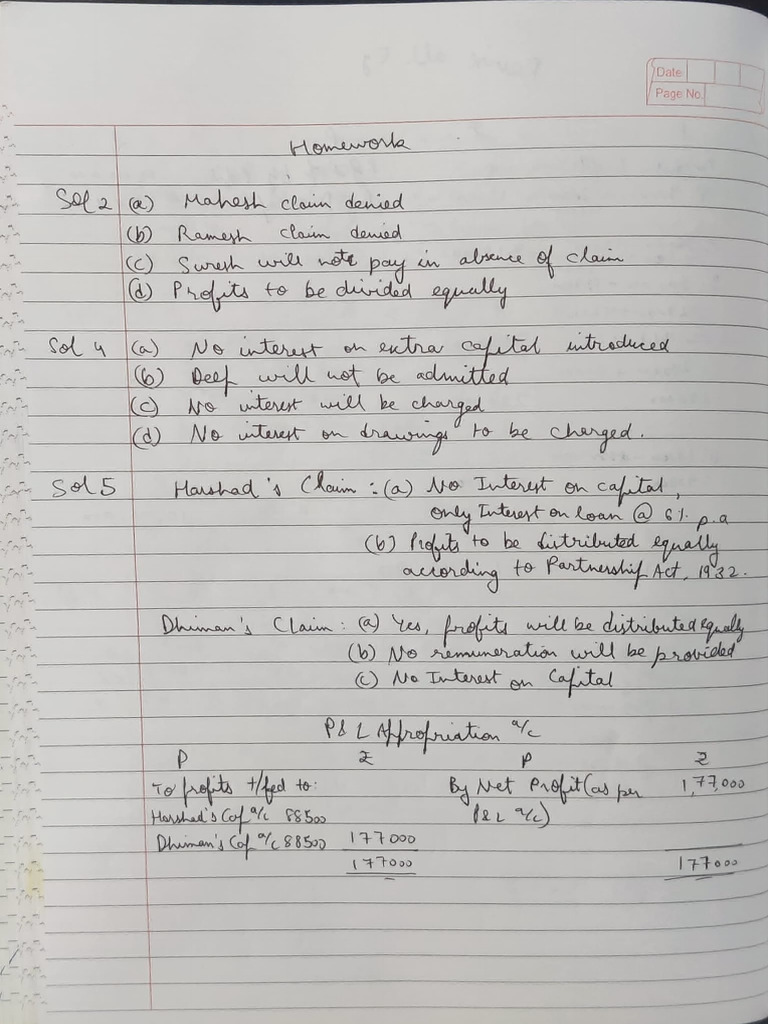 Date
Page No.
Homework
Sol 2 (a) Mahesh claim denied
(b) Ramesh claim denied
(c) Suresh will note pay in absence of claim
(d) Profits to be divided equally
Sol 4 (a) No interest on extra capital introduced
(b) Deep will not be admitted
(c) No interest will be charged
(d) No interest on drawings to be charged.
Sol 5 Harshad's Claim : (a) No Interest on capital,
only Interest on loan @ 6% p.a
(b) Profits to be distributed equally
according to Partnership Act, 1932.
Dhiman's Claim : (a) Yes, profits will be distributed equally
(b) No remuneration will be provided
(c) No Interest on Capital
P & L Appropriation a/c
P ₹ P ₹
To profits t/fed to: By Net Profit (as per 1,77,000
Harshad's Cap a/c 88500 P & L a/c)
Dhiman's Cap a/c 88500 177000
177000 177000